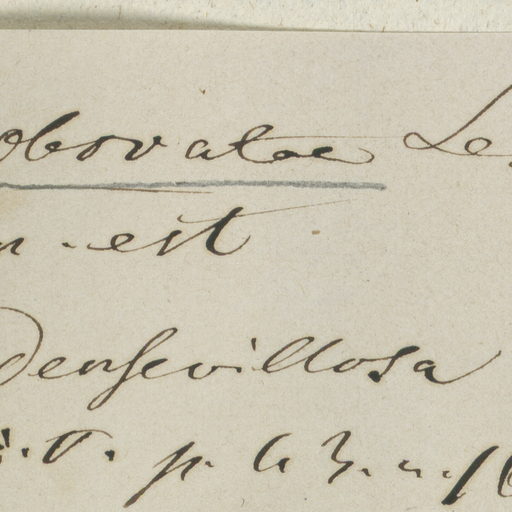 obovatae Le
n. est
Densevillosa
T. p. 63. n.